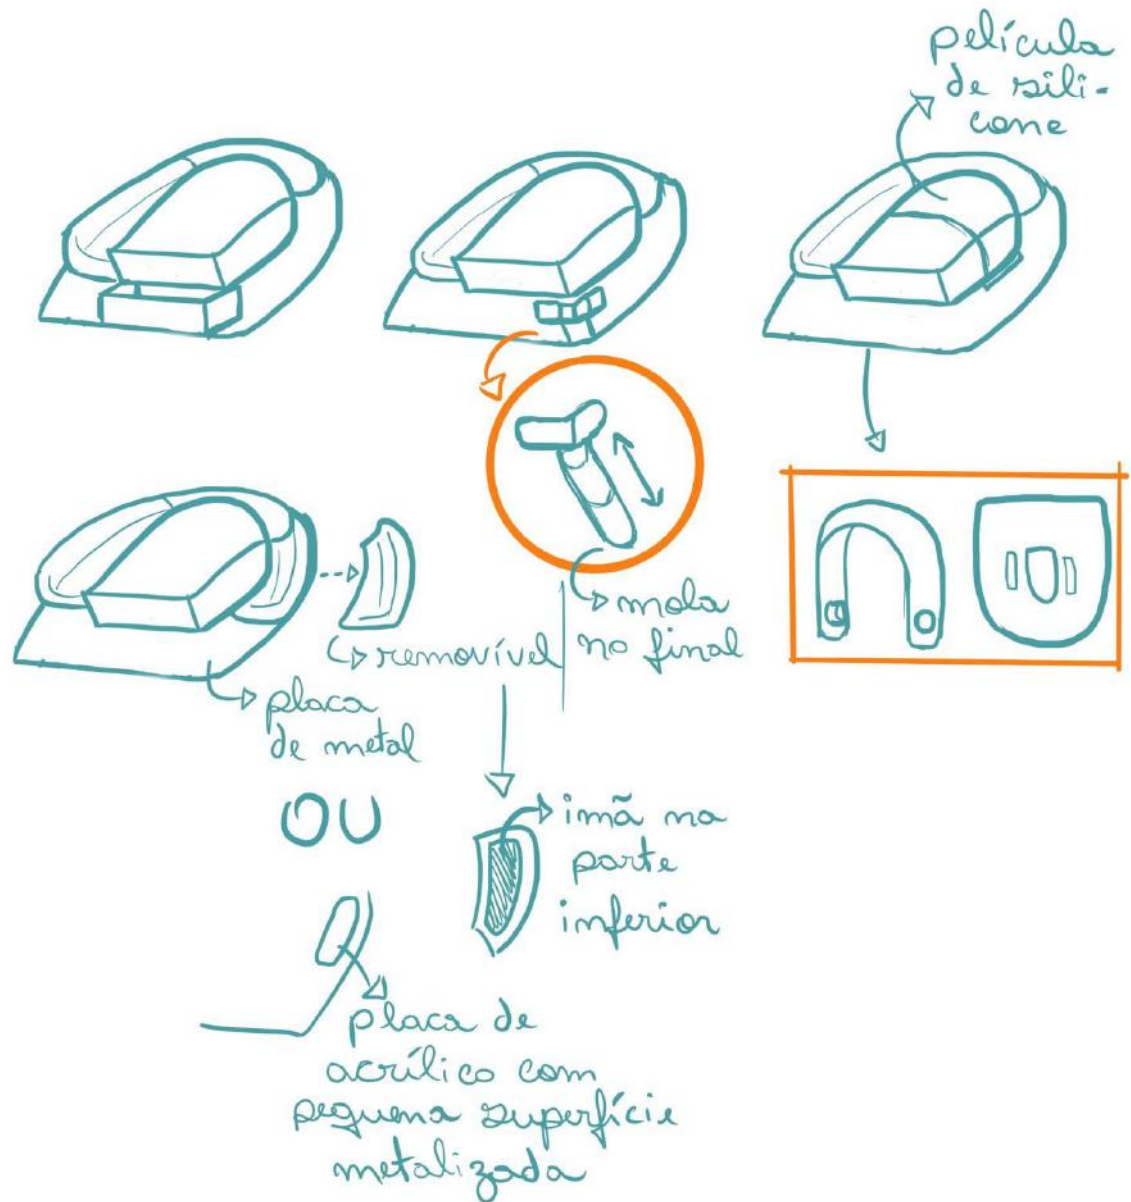 película
de sili-
cone
removível
mola
no final
placa
de metal
OU
imã na
parte
inferior
placa de
acrílico com
pequena superfície
metalizada